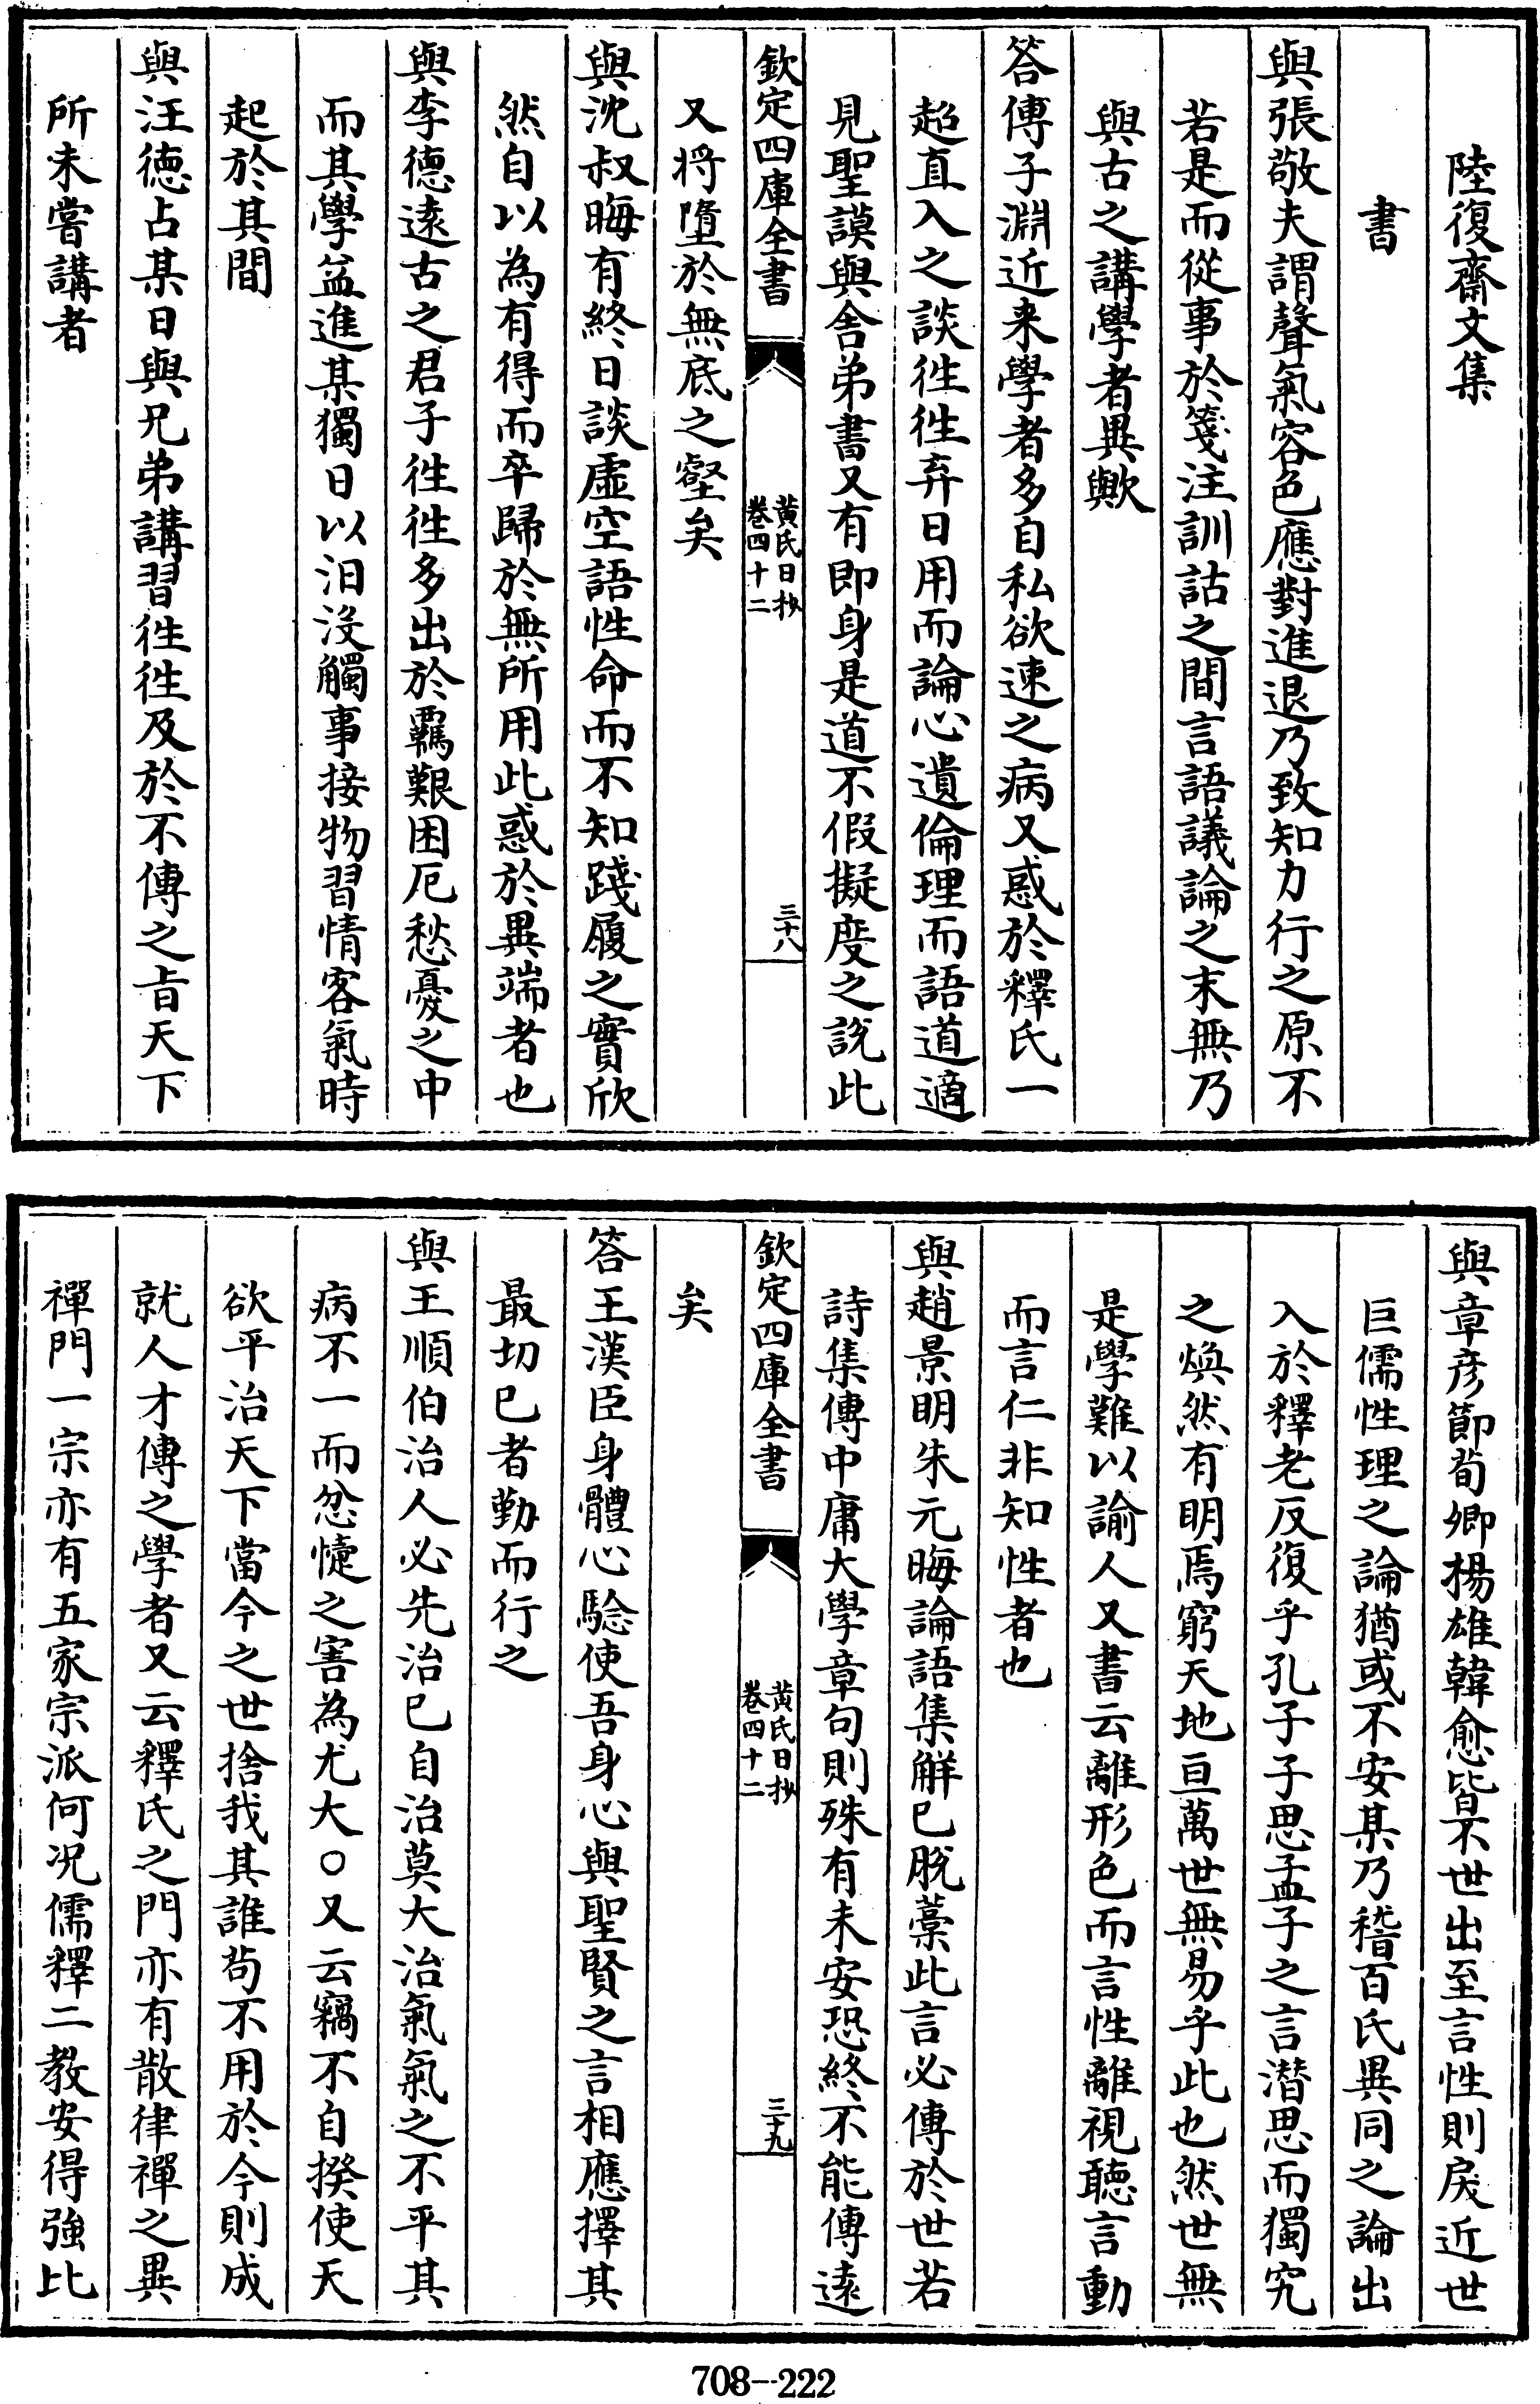 陸復齋文集
書
與張敬夫謂聲氣容色應對進退乃致知力行之原不
若是而從事於箋注訓詁之間言語議論之末無乃
與古之講學者異歟
答傅子淵近来學者多自私欲速之病又惑於釋氏一
超直入之談徃徃弃日用而論心遺倫理而語道適
見聖謨與舎弟書又有即身是道不假擬度之說此
欽定四庫全書
黄氏日抄
卷四十二
三十八
又将墮於無底之壑矣
與沈叔晦有終日談虛空語性命而不知踐履之實欣
然自以為有得而卒歸於無所用此惑於異端者也
與李德逺古之君子徃徃多出於覊艱困厄愁憂之中
而其學益進某獨日以汨沒觸事接物習情客氣時
起於其間
與汪德占某日與兄弟講習徃徃及於不傳之㫖天下
所未嘗講者
與章彦節荀卿楊雄韓愈皆不世出至言性則戾近世
巨儒性理之論猶或不安某乃稽百氏異同之論出
入於釋老反復乎孔子子思孟子之言潜思而獨究
之煥然有明焉窮天地亘萬世無易乎此也然世無
是學難以諭人又書云離形色而言性離視聽言動
而言仁非知性者也
與趙景明朱元晦論語集解已脫藁此言必傳於世若
詩集傳中庸大學章句則殊有未安恐終不能傳逺
欽定四庫全書
黄氏日抄
卷四十二
三十九
矣
答王漢臣身體心騐使吾身心與聖賢之言相應擇其
最切已者勤而行之
與王順伯治人必先治已自治莫大治氣氣之不平其
病不一而忿懥之害為尤大○又云竊不自揆使天
欲平治天下當今之世捨我其誰茍不用於今則成
就人才傳之學者又云釋氏之門亦有散律禪之異
禪門一宗亦有五家宗派何况儒釋二教安得強比
708-222